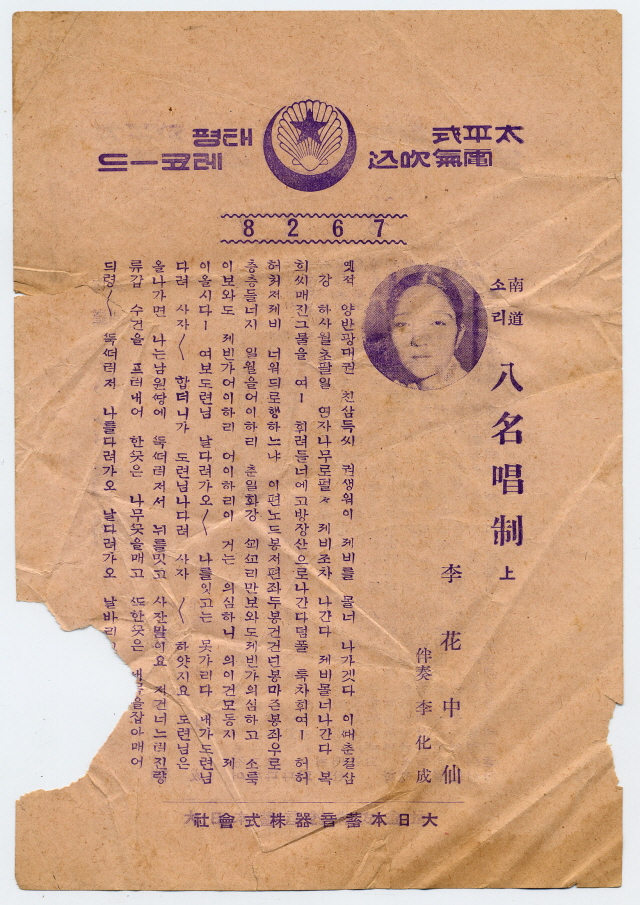 太平式
電氣吹込
태평
레코ー드
8267
南道
소리
八名唱制 上
李花中仙
伴奏 李化成
옛적 양반광대권 친삼득씨 권생원이 제비를 몰너 나가겟다 이때춘절삼
강 하사월초팔일 연자나무로펄々 제비조차 나간다 제비몰너나간다 복
희씨매진그물을 여ー 휘려들너에고방장산으로나간다덤폴 툭차휘여ー 허허
허처저제비 너워듸로행하느냐 이편노드봉저편좌두봉건넌봉마즌봉좌우로
층층들너지 일월을어이하리 춘일화강 꾀꼬리만보와도제빈가의심하고 소룩
이보와도 제빈가어이하리 어이하리이 거는 의심하니 의이건모둥지 제
이올시다ー 여보도련님 날다려가오〱 나를잇고는 못가리다 내가도련님
다려 사자〱 합더니가 도련님나다려 사자 〱 하얏지요 도련님은
올나가면 나는남원땅에 뚝떠러저서 뉘를밋고 사잔말이요 저건너느러진양
류갑 수건을 프러내어 한끗은 나무끗을매고 또한끗은 을잡아매어
듸렁〱 뚝떠러저 나를다려가오 날다려가오 날바리고
大日本蓄音器株式會社